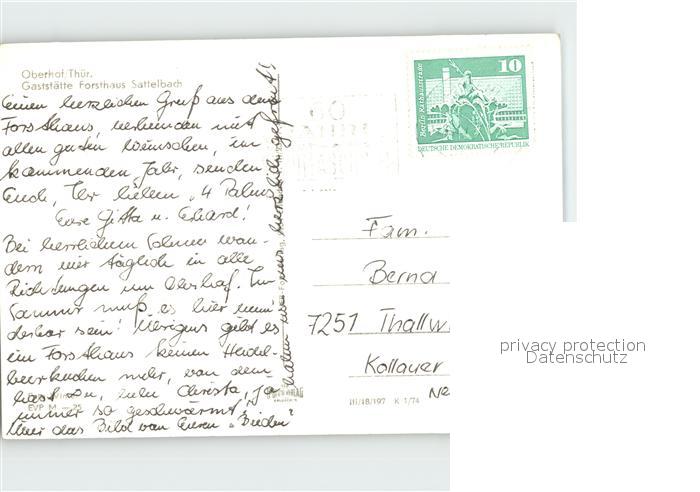 Oberhof/Thür.
Gaststätte Forsthaus Sattelbach
Einen herzlichen Gruß aus dem
Forsthaus, verbunden mit
allen guten Wünschen, im
kommenden Jahr, senden
Euch, Ihr lieben „4 Palms
Eure Gitta u. Erhard!
Bei herrlichem Sonnen wan-
dern wir täglich in alle
Richtungen um Oberhof. Im
Sommer muß es hier wun
derbar sein! Übrigens gibt es
im Forsthaus keinen Heidel-
beerkuchen mehr, von dem
hast Du, liebe Christa, ja
immer so geschwärmt!
Über das Bild von Euren „Beiden"
haben wir uns herzlich gefreut!
EVP M
III/18/197 K 1/74
Berlin, Rathausstraße
10
DEUTSCHE DEMOKRATISCHE REPUBLIK
Fam.
Bernd
7251 Thallw
Kollauer
privacy protection
Datenschutz